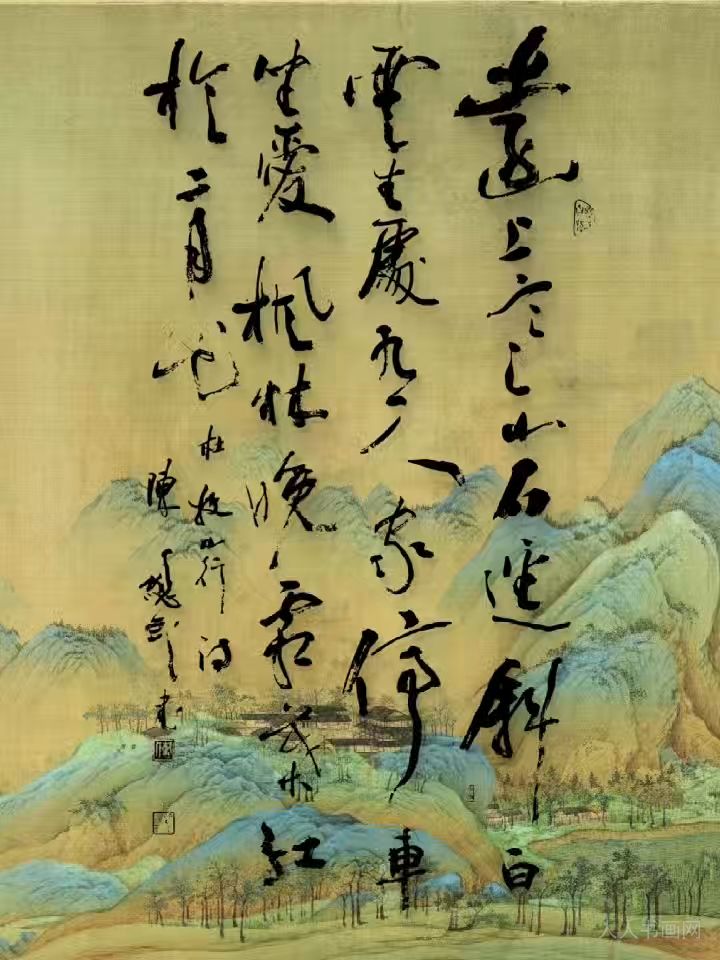 遠上寒山石逕斜白
雲生處有人家停車
坐愛楓林晚霜葉紅
於二月花
杜牧山行詩
陳書
人人书画网